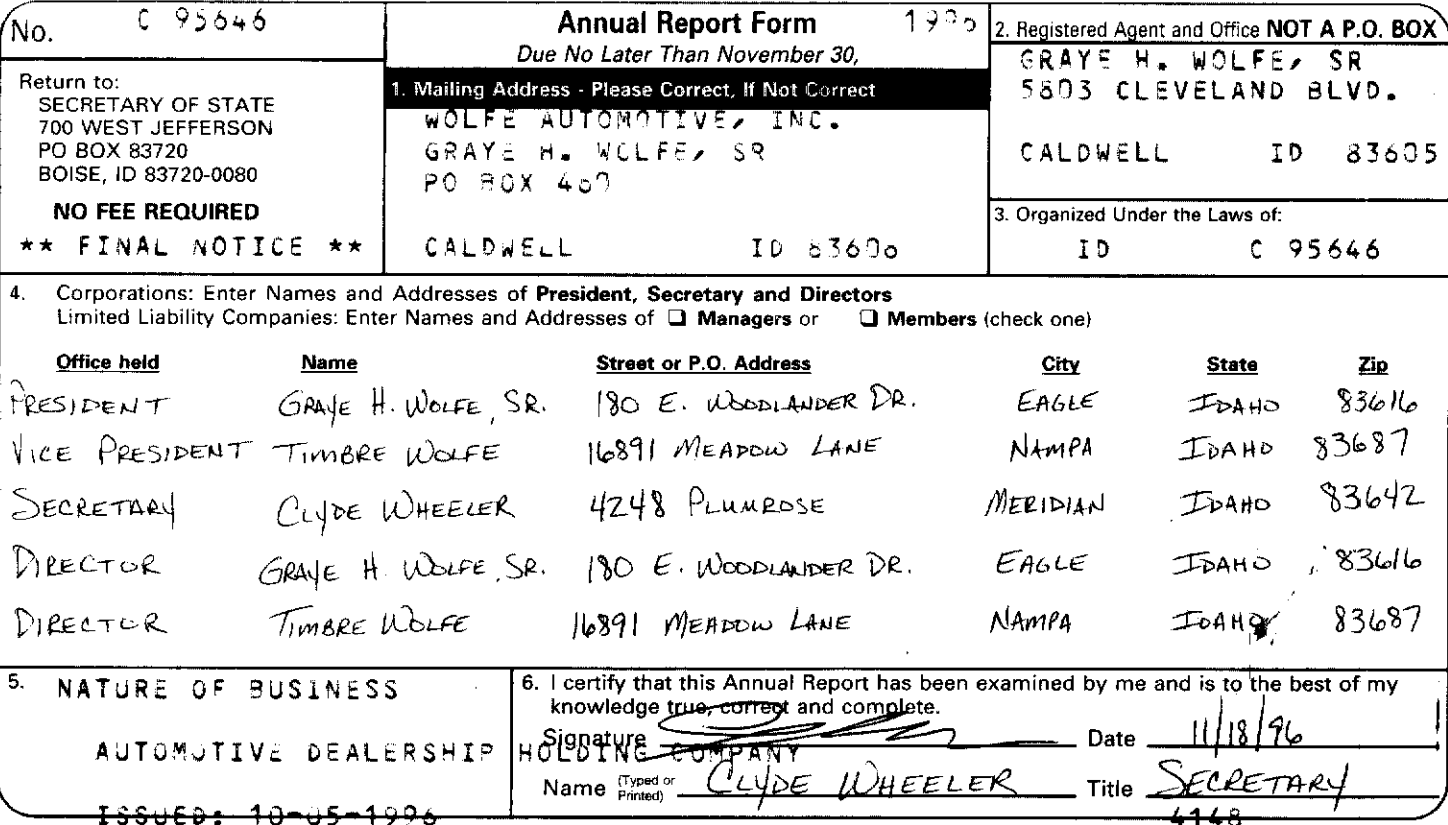 No. C 95646
Annual Report Form 1996
Due No Later Than November 30,
Return to:
SECRETARY OF STATE
700 WEST JEFFERSON
PO BOX 83720
BOISE, ID 83720-0080
NO FEE REQUIRED
** FINAL NOTICE **
1. Mailing Address - Please Correct, If Not Correct
WOLFE AUTOMOTIVE, INC.
GRAYE H. WOLFE, SR
PO BOX
CALDWELL ID 83606
2. Registered Agent and Office NOT A P.O. BOX
GRAYE H. WOLFE, SR
5803 CLEVELAND BLVD.
CALDWELL ID 83605
3. Organized Under the Laws of:
ID C 95646
4. Corporations: Enter Names and Addresses of President, Secretary and Directors
Limited Liability Companies: Enter Names and Addresses of ❑ Managers or ❑ Members (check one)
Office held Name Street or P.O. Address City State Zip
PRESIDENT GRAYE H. WOLFE, SR. 180 E. WOODLANDER DR. EAGLE IDAHO 83616
VICE PRESIDENT TIMBRE WOLFE 16891 MEADOW LANE NAMPA IDAHO 83687
SECRETARY CLYDE WHEELER 4248 PLUMROSE MERIDIAN IDAHO 83642
DIRECTOR GRAYE H. WOLFE, SR. 180 E. WOODLANDER DR. EAGLE IDAHO 83616
DIRECTOR TIMBRE WOLFE 16891 MEADOW LANE NAMPA IDAHO 83687
5. NATURE OF BUSINESS
AUTOMOTIVE DEALERSHIP HOLDING COMPANY
ISSUED: 10-05-1996
6. I certify that this Annual Report has been examined by me and is to the best of my
knowledge true, correct and complete.
Signature Date 11/18/96
Name (Typed or Printed) CLYDE WHEELER Title SECRETARY
4148